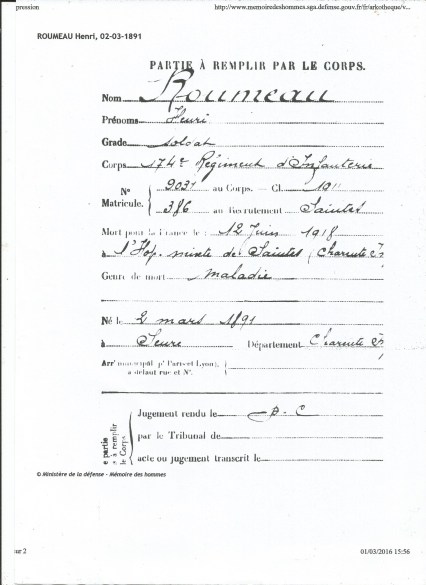 pression http://www.memoiredeshommes.sga.defense.gouv.fr/fr/arkotheque/v...
ROUMEAU Henri, 02-03-1891
PARTIE À REMPLIR PAR LE CORPS.
Nom Roumeau
Prénoms Henri
Grade soldat
Corps 174e Régiment d'Infanterie
No Matricule. 9031 au Corps. — Cl. 1911
386 au Recrutement Saintes
Mort pour la France le : 12 Juin 1918
à l'Hop. mixte de Saintes (Charente Ire
Genre de mort maladie
Né le 2 mars 1891
à Seure Département Charente Ire
Arrt municipal (pr Paris et Lyon),
à défaut rue et No.
Jugement rendu le
par le Tribunal de
acte ou jugement transcrit le
e partie
à remplir
le Corps
© Ministère de la défense - Mémoire des hommes
ur 2 01/03/2016 15:56